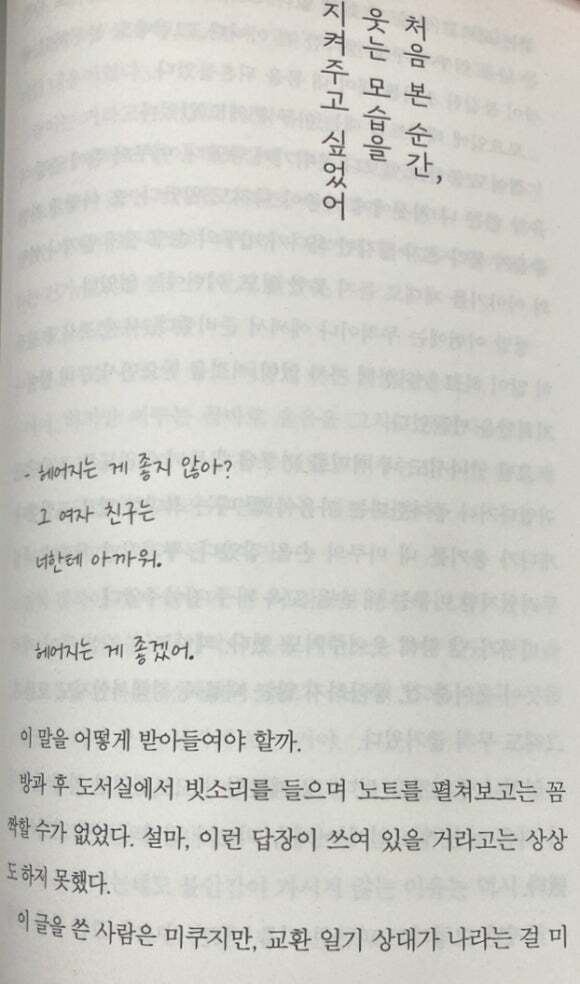 처음 본 순간,
웃는 모습을
지켜주고 싶었어
- 헤어지는 게 좋지 않아?
그 여자 친구는
너한테 아까워.
헤어지는 게 좋겠어.
이 말을 어떻게 받아들여야 할까.
방과 후 도서실에서 빗소리를 들으며 노트를 펼쳐보고는 꼼
짝할 수가 없었다. 설마, 이런 답장이 쓰여 있을 거라고는 상상
도 하지 못했다.
이 글을 쓴 사람은 미쿠지만, 교환 일기 상대가 나라는 걸 미